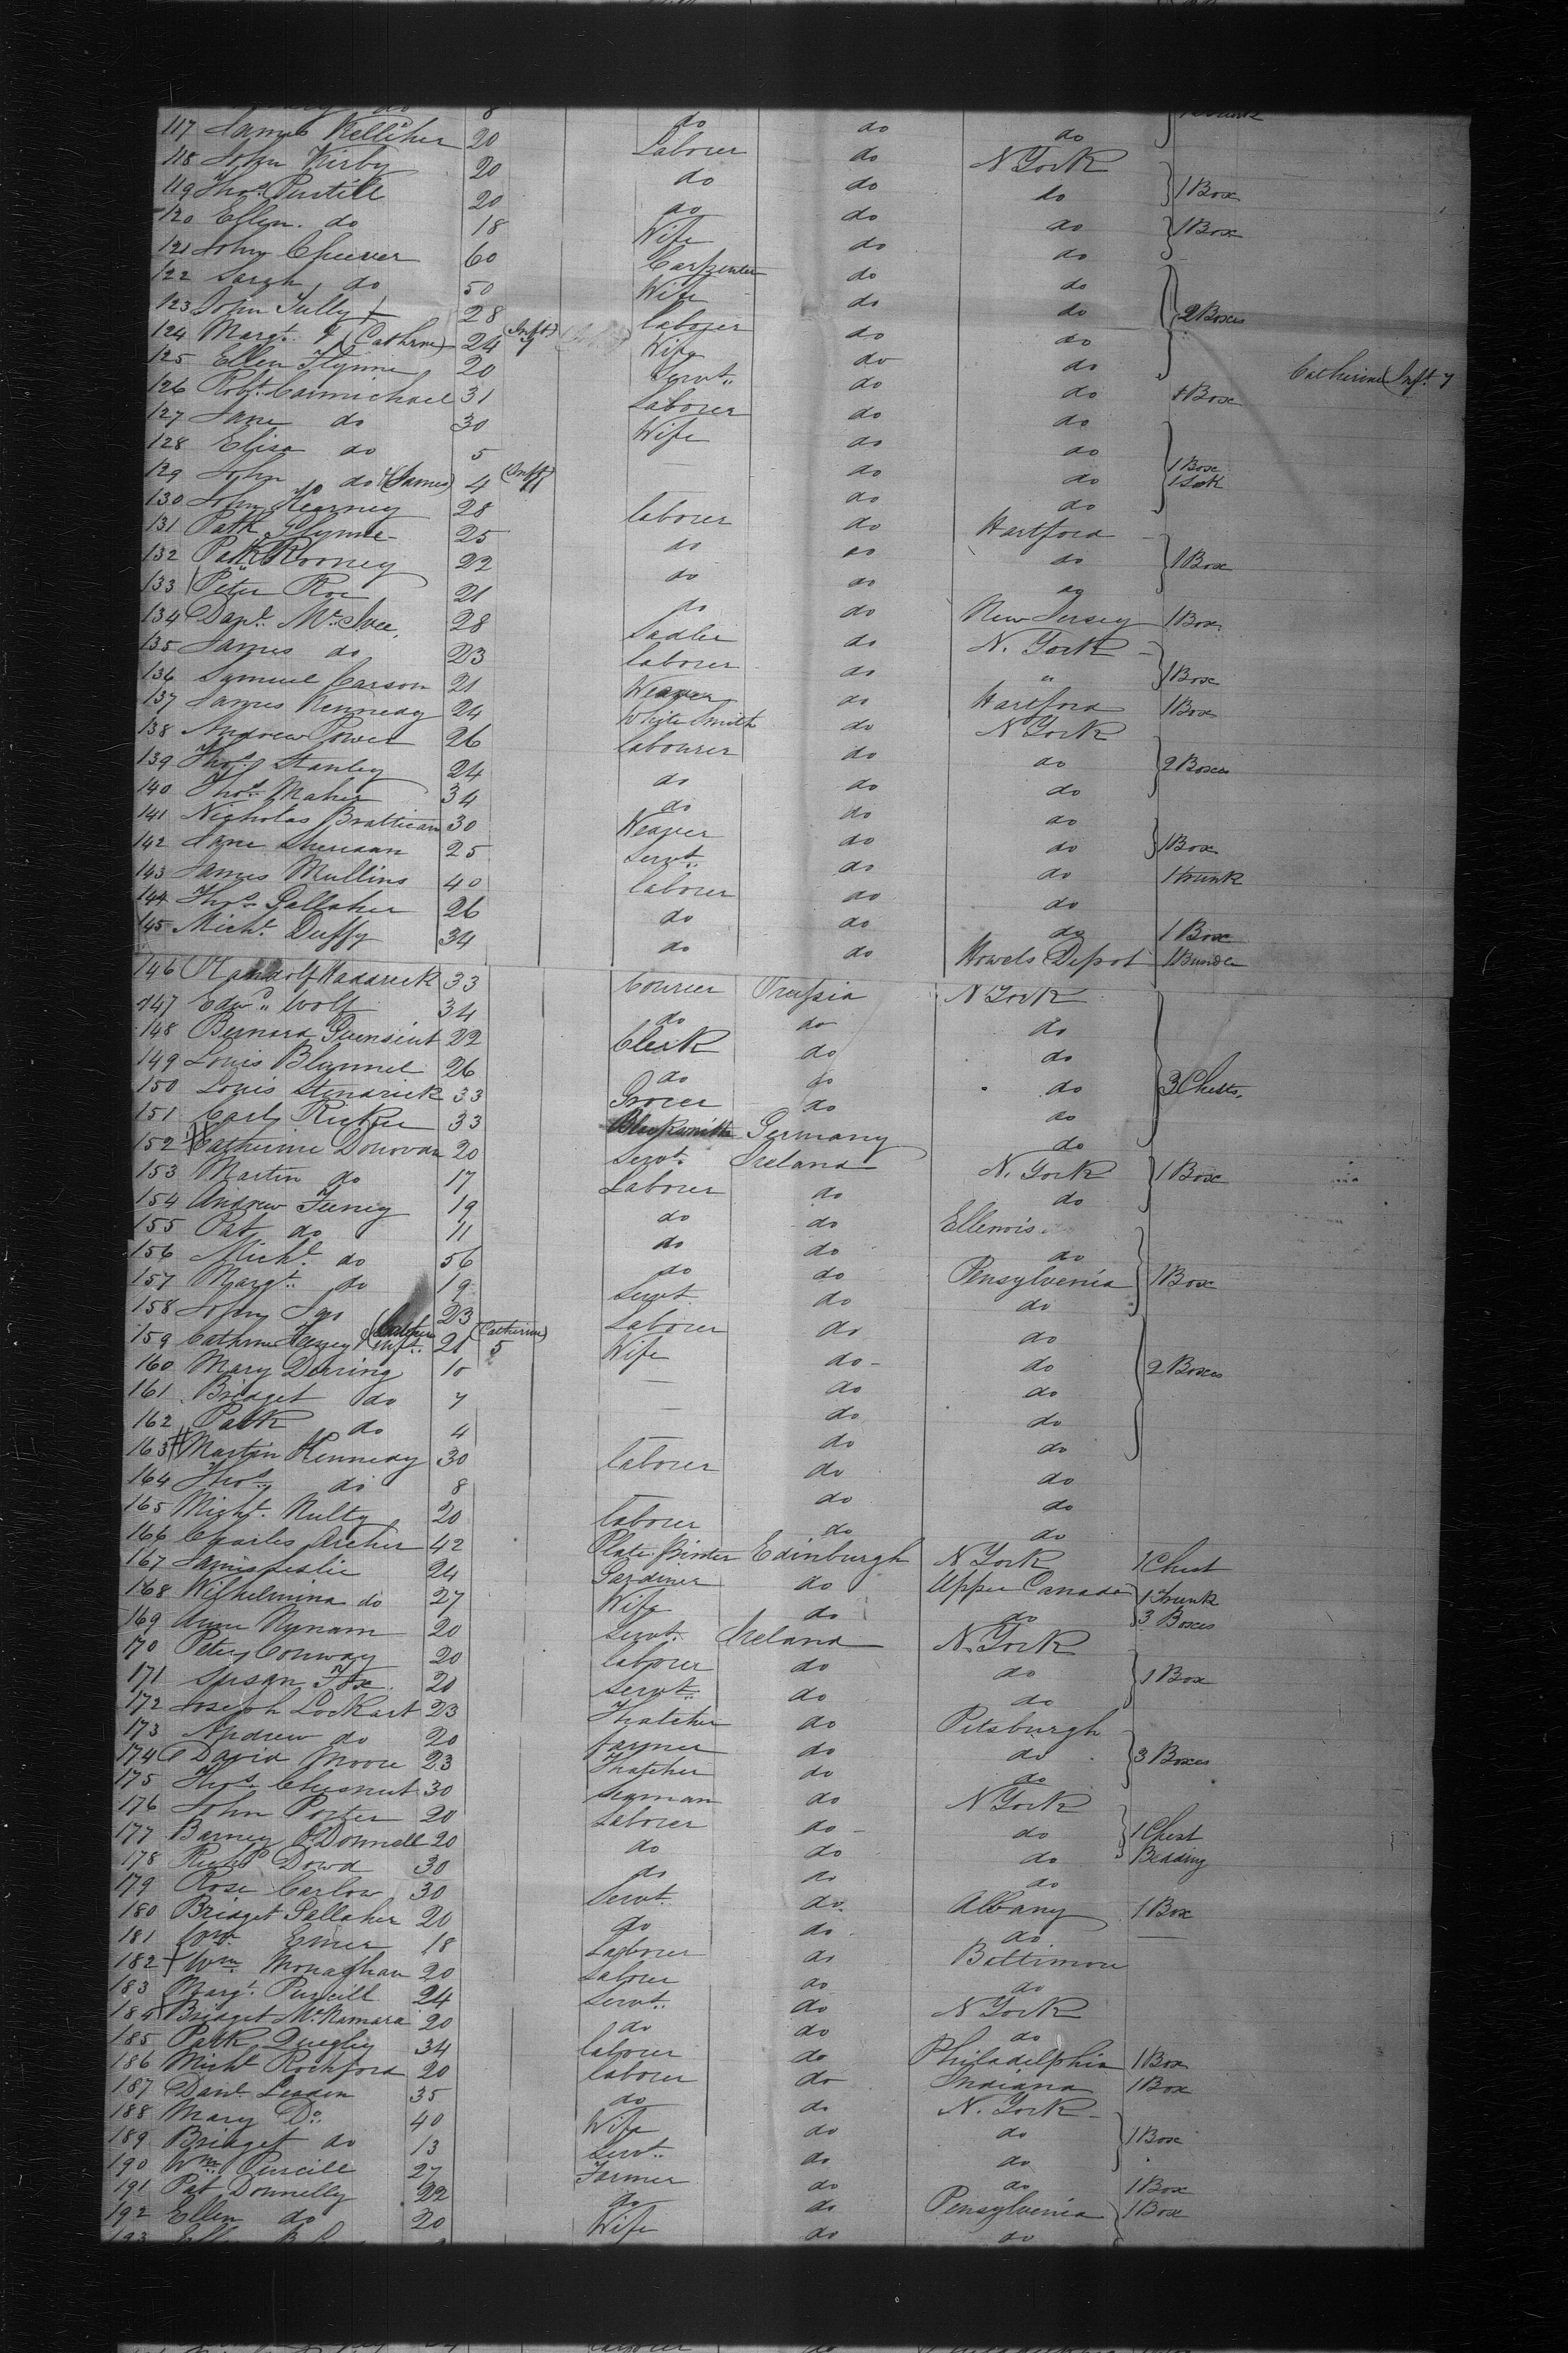 117 James Kelliher 20 do do do
118 John Kirby 20 Laborer do N York
119 Thos. Purtill 20 do do do 1 Box
120 Ellen do 18 Wife do do 1 Box
121 John Cheever 60 Carpenter do do
122 Sarah do 50 Wife do do
123 John Tully 28 laborer do do 2 Boxes
124 Margt. & (Cathrine) 24 (Inft) 7 Wife do do
125 Ellen Flynne 20 Servt. do do Catherine Inft. 7
126 Robt. Carmichael 31 Laborer do do 1 Box
127 Jane do 30 Wife do do
128 Eliza do 5 do do
129 John do (James) 4 (Inft) do do 1 Box 1 Sack
130 John Kearney 28 laborer do do
131 Patk Flynne 25 do do Hartford
132 Patk Rooney 22 do do do 1 Box
133 Peter Roe 21 do do do
134 Danl. McIvee 28 Sadler do New Jersey 1 Box
135 James do 23 laborer do N. York
136 Samuel Carson 21 Weaver do " 1 Box
137 James Kennedy 24 White Smith do Hartford 1 Box
138 Andrew Power 26 labourer do N York
139 Thos. Stanley 24 do do do 2 Boxes
140 Thos. Maher 34 do do do
141 Nicholas 30 Weaver do do
142 Jane Sheridan 25 Servt. do do 1 Box
143 James Mullins 40 laborer do do 1 trunk
144 Thos. Gallaher 26 do do do
145 Michl. Duffy 34 do do do 1 Box
Howels Depot 1 Bundle
146 33 Courier Prussia N York
147 Edwd. Wolf 34 do do do
148 Bernard 22 Clerk do do
149 Louis Blummel 26 do do do 3 Chests
150 Louis 33 Grocer do do
151 Carl 33 Blacksmith Germany do
152 Catherine Donovan 20 Servt. Ireland N. York 1 Box
153 Martin do 17 Laborer do do
154 Andrew Feeney 19 do do Ellenois
155 Pat do 11 do do do
156 Michl. do 56 do do Pensylvenia 1 Box
157 Margt. do 19 Servt do do
158 John 23 Laborer do do
159 Cathrine & (Catherine Inft.) 21 (Catherine) 5 Wife do do
160 Mary Derring 10 — do do 2 Boxes
161 Bridget do 7 — do do
162 Patk do 4 — do do
163 Martin Kennedy 30 laborer do do
164 Thos. do 8 — do do
165 Michl. Nulty 20 laborer do do
166 Charles Archer 42 Plate Printer Edinburgh N York 1 Chest
167 James Leslie 24 Gardiner do Upper Canada 1 Trunk
168 Wilhelmina do 27 Wife do do 3 Boxes
169 Anne Nynam 20 Servt. Ireland N. York
170 Peter Conway 20 laborer do do 1 Box
171 Susan Fox 20 Servt. do do
172 Joseph Lockart 23 Thatcher do Pitsburgh
173 Andrew do 20 farmer do do 3 Boxes
174 David Moore 23 Thatcher do do
175 Thos. Chesnut 30 Seaman do N York
176 John Porter 20 Laborer do do 1 Chest
177 Barney O'Donnell 20 do do do Bedding
178 Richd. Dowd 30 do do do
179 Rose Carlow 30 Servt. do Albany 1 Box
180 Bridget Gallaher 20 do do do
181 Emer 18 Laborer do Beltimore
182 Wm. Monaghan 20 Laborer do do
183 Margt. Purcill 24 Servt. do N York
184 Bridget McNamara 20 do do do
185 Patk Quegley 34 laborer do Philadelphia 1 Box
186 Michl. Rochford 20 laborer do Indiana 1 Box
187 Danl. Leaden 35 do do N. York
188 Mary Do. 40 Wife do do 1 Box
189 Bridget do 13 Servt. do do
190 Wm. Purcill 27 Farmer do do 1 Box
191 Pat Donnelly 22 do do Pensylvenia 1 Box
192 Ellen do 20 Wife do do
193